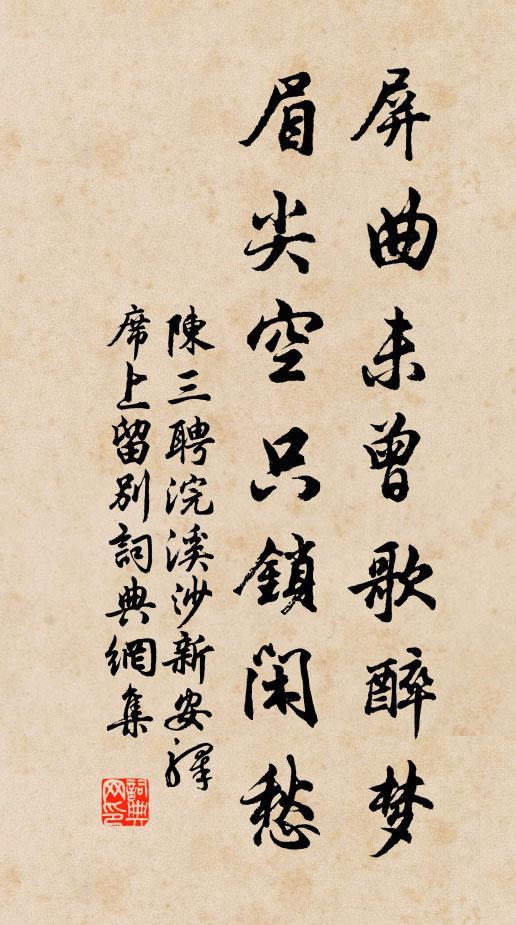 屏曲未曾歌醉梦
眉尖空只鎖閑愁
陳三聘浣溪沙新安驛
席上留別詞典網集
詞典网印